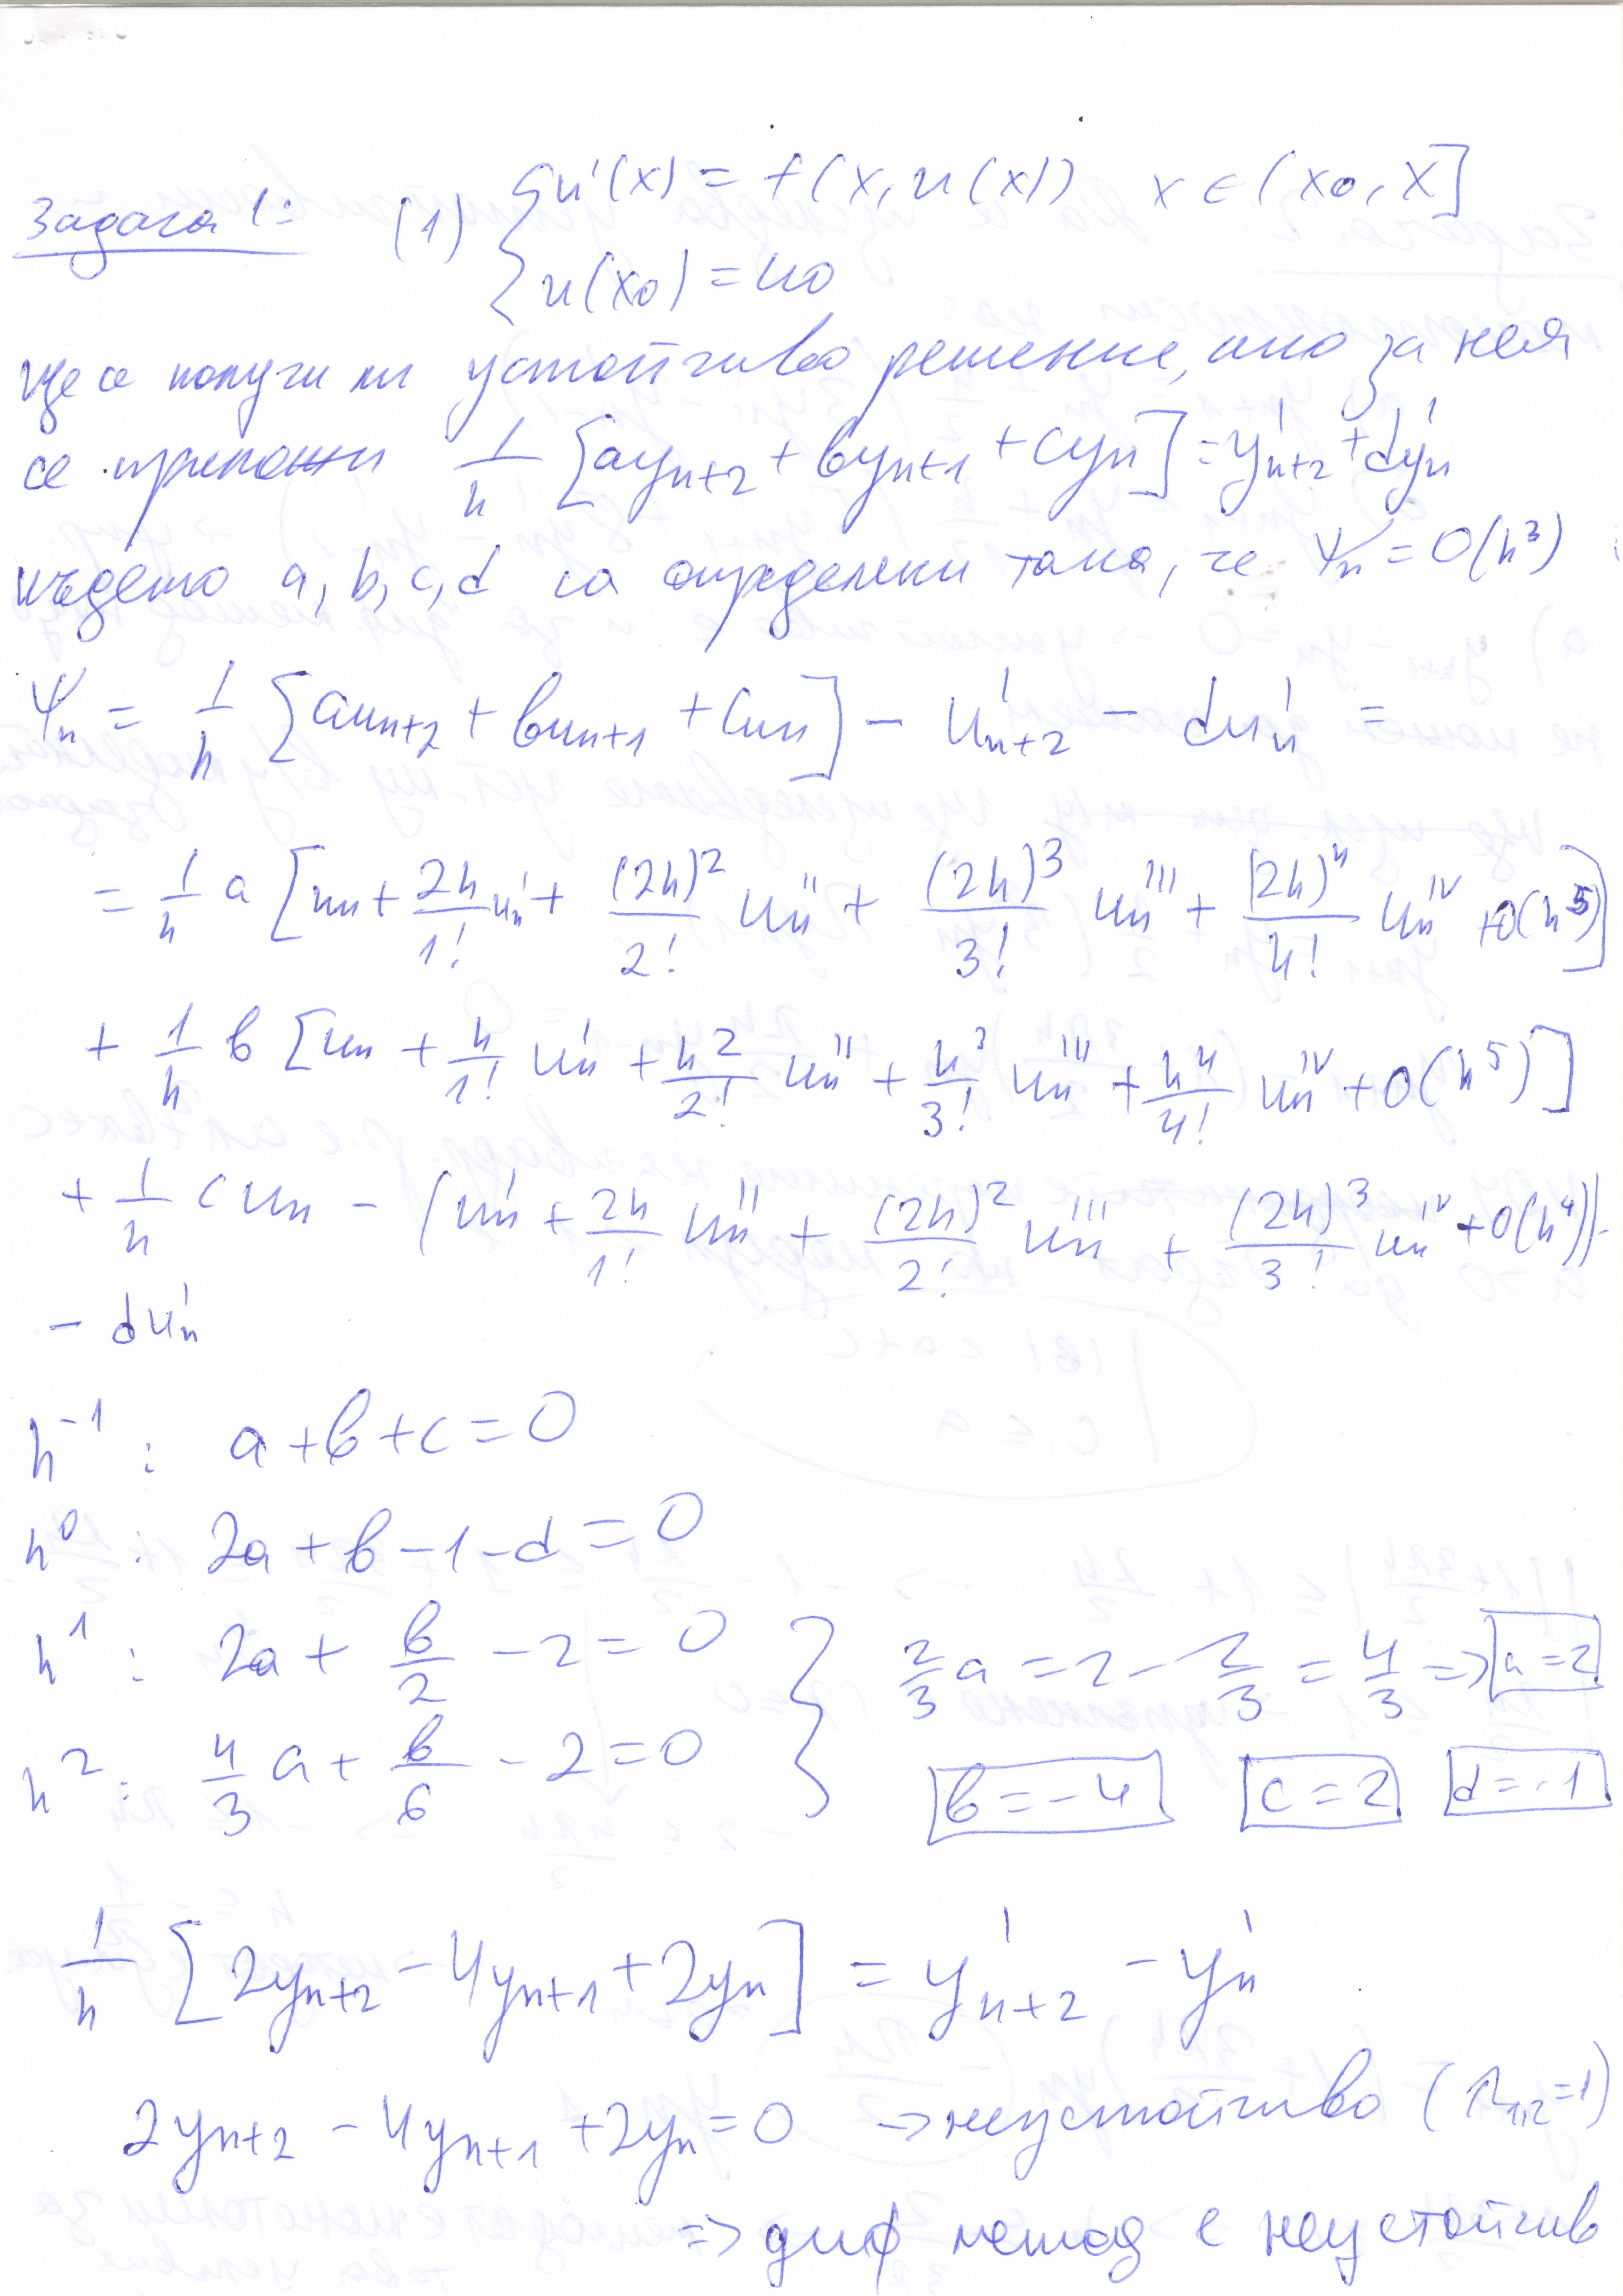 Задача 1: (1) { u'(x) = f(x, u(x)) x ∈ (x0, X]
u(x0) = u0
ще се получи ли устойчиво решение, ако за нея
се приложи 1/h [ay_{n+2} + by_{n+1} + cy_n] = y'_{n+2} + dy'_n
където a, b, c, d са определени така, че Ψ_n = O(h^3)
Ψ_n = 1/h [au_{n+2} + bu_{n+1} + cu_n] - u'_{n+2} - du'_n =
= 1/h a [u_n + 2h/1! u'_n + (2h)^2/2! u''_n + (2h)^3/3! u'''_n + (2h)^4/4! u^{IV}_n + O(h^5)]
+ 1/h b [u_n + h/1! u'_n + h^2/2! u''_n + h^3/3! u'''_n + h^4/4! u^{IV}_n + O(h^5)]
+ 1/h c u_n - (u'_n + 2h/1! u''_n + (2h)^2/2! u'''_n + (2h)^3/3! u^{IV}_n + O(h^4)) -
- du'_n
h^{-1} : a + b + c = 0
h^0 : 2a + b - 1 - d = 0
h^1 : 2a + b/2 - 2 = 0 } 2/3 a = 2 - 2/3 = 4/3 => a = 2
h^2 : 4/3 a + b/6 - 2 = 0 b = -4 c = 2 d = -1
1/h [2y_{n+2} - 4y_{n+1} + 2y_n] = y'_{n+2} - y'_n
2y_{n+2} - 4y_{n+1} + 2y_n = 0 -> неустойчиво (r_{1,2} = 1)
=> диф метод е неустойчив